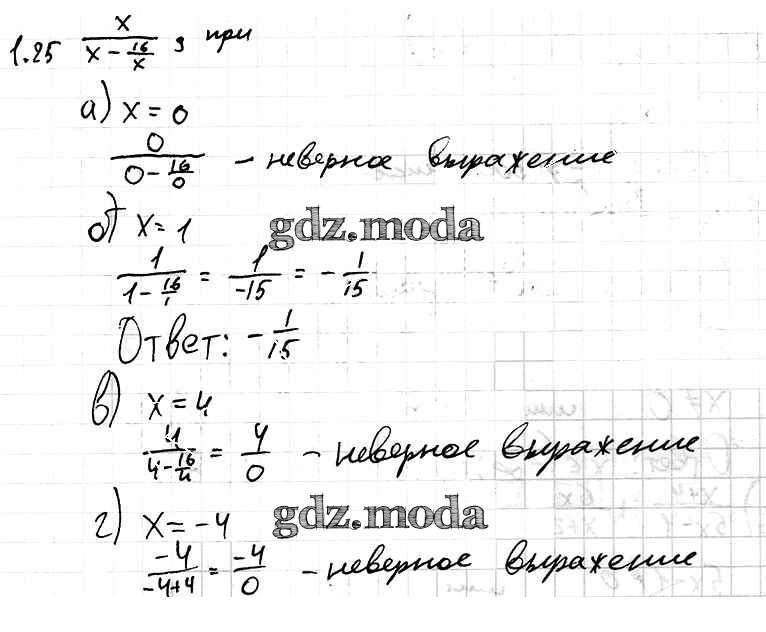 1.25 x/(x - 16/x), при
а) x = 0
0/(0 - 16/0) - неверное выражение
б) x = 1
gdz.moda
1/(1 - 16/1) = 1/-15 = - 1/15
Ответ: - 1/15
в) x = 4
4/(4 - 16/4) = 4/0 - неверное выражение
г) x = -4
gdz.moda
-4/(-4+4) = -4/0 - неверное выражение